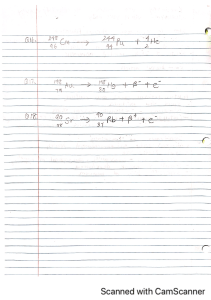 ²⁴⁸₉₆Cm → ²⁴⁴₉₄Pu + ⁴₂He
¹⁹⁸₇₉Au → ¹⁹⁸₈₀Hg + β⁻ + e⁻
Sr → Rb + β⁺ + e⁻
Scanned with CamScanner